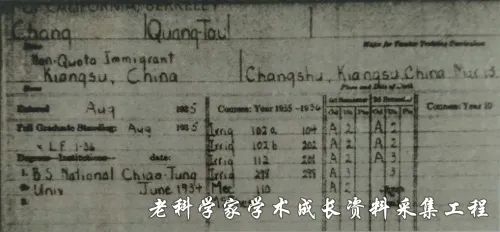 OF CALIFORNIA, BERKELEY
Chang Quang-Tou
Name Major for Teacher Training Curriculum
Non-Quota Immigrant
Kiangsu, China Changshu, Kiangsu, China Mar 13
Home Place and Date of Birth
Entered Aug 1935 Courses: Year 1935-1936 1st Semester 2d Semest. Courses: Year 19
Full Graduate Standing: Aug 1935 Irrig 102a 104 A 2 A 2
x LF 1-36 Irrig 102b 202 A 2 A 2
Degrees—Institutions— date: Irrig 112 201 A 2 A 3
1. B.S. National Chiao-Tung Irrig 298 298 A 3 3
2. Univ June 1934 Mec 110 A 2
3.
老科学家学术成长资料采集工程